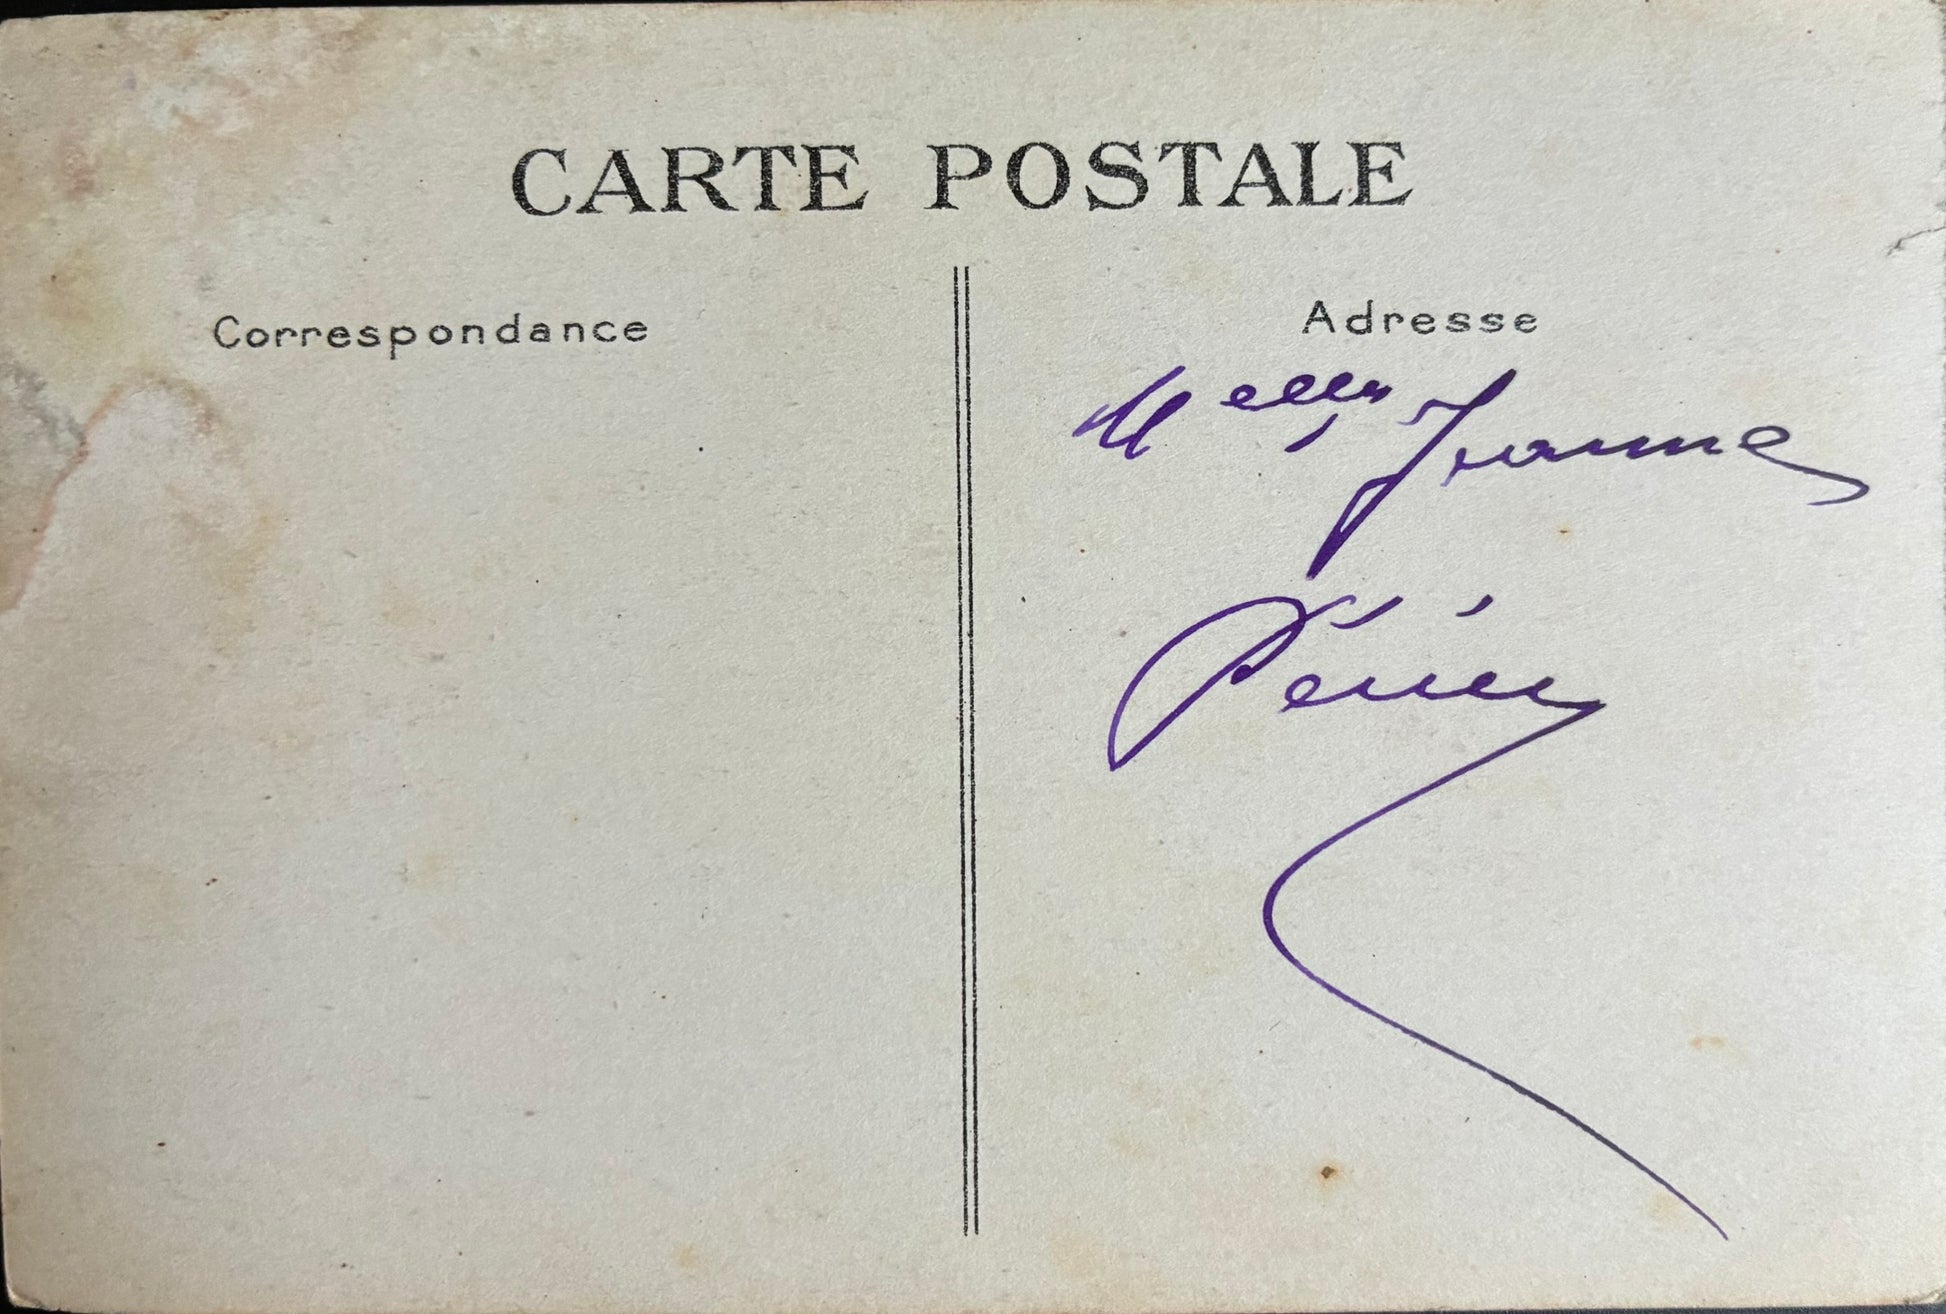 CARTE POSTALE
Correspondance
Adresse
Melle Jeanne
Périer